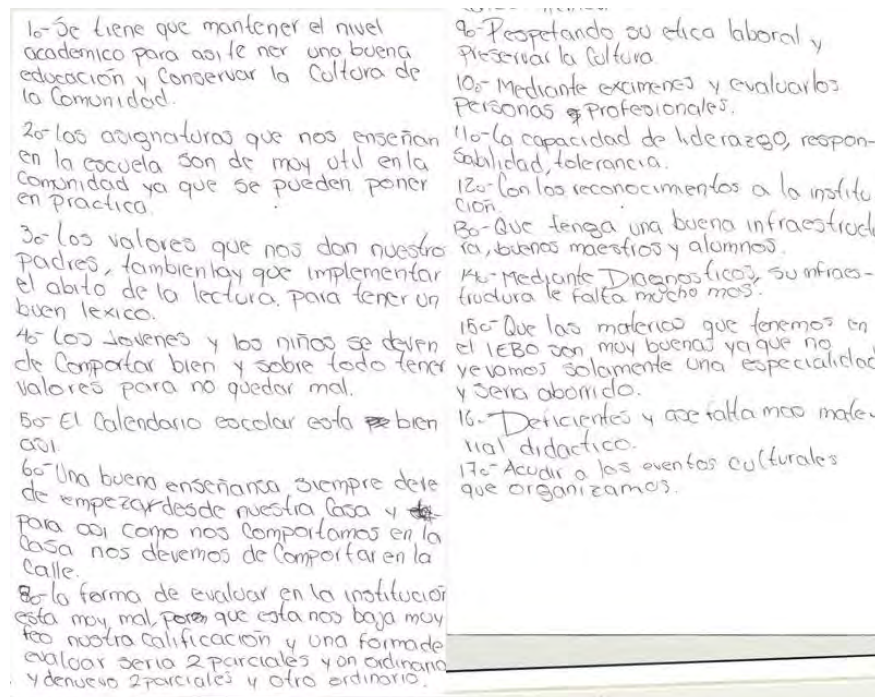 1o-Se tiene que mantener el nivel
academico para asi te ner una buena
educación y Conservar la Cultura de
la Comunidad.
2o-las asignaturas que nos enseñan
en la escuela son de muy util en la
Comunidad ya que se pueden poner
en practica.
3o-los valores que nos dan nuestro
padres, tambien hay que implementar
el abito de la lectura. para tener un
buen lexico.
4o-los Jovenes y los niños se deven
de Comportar bien y sobre todo tener
valores para no quedar mal.
5o-El Calendario escolar esta bien
asi.
6o-Una buena enseñansa siempre deve
de empezar desde nuestra Casa y
para asi como nos Comportamos en la
Casa nos devemos de Comportar en la
Calle.
8o-la forma de evaluar en la institución
esta muy mal, que esta nos baja muy
feo nustra Calificación y una forma de
evaluar seria 2 parciales y un ordinario
y denuevo 2 parciales y otro ordinario.
9o-Respetando su etica laboral y
Preservar la Cultura.
10o-Mediante examenes y evaluarlos
Personas Profesionales.
11o-la capacidad de liderazgo, respon-
sabilidad, tolerancia.
12o-Con los reconocimientos a la institu
ción.
13o-Que tenga una buena infraestructu
ra, buenos maestros y alumnos.
14o-Mediante Diagnosticos, su infraes-
tructura le falta mucho mas.
15o-Que las materias que tenemos en
el IEBO son muy buenas ya que no
yevamos solamente una especialidad
y seria aborrido.
16.-Deficientes y ase falta mas mate-
rial didactico.
17o-Acudir a los eventos culturales
que organizamos.